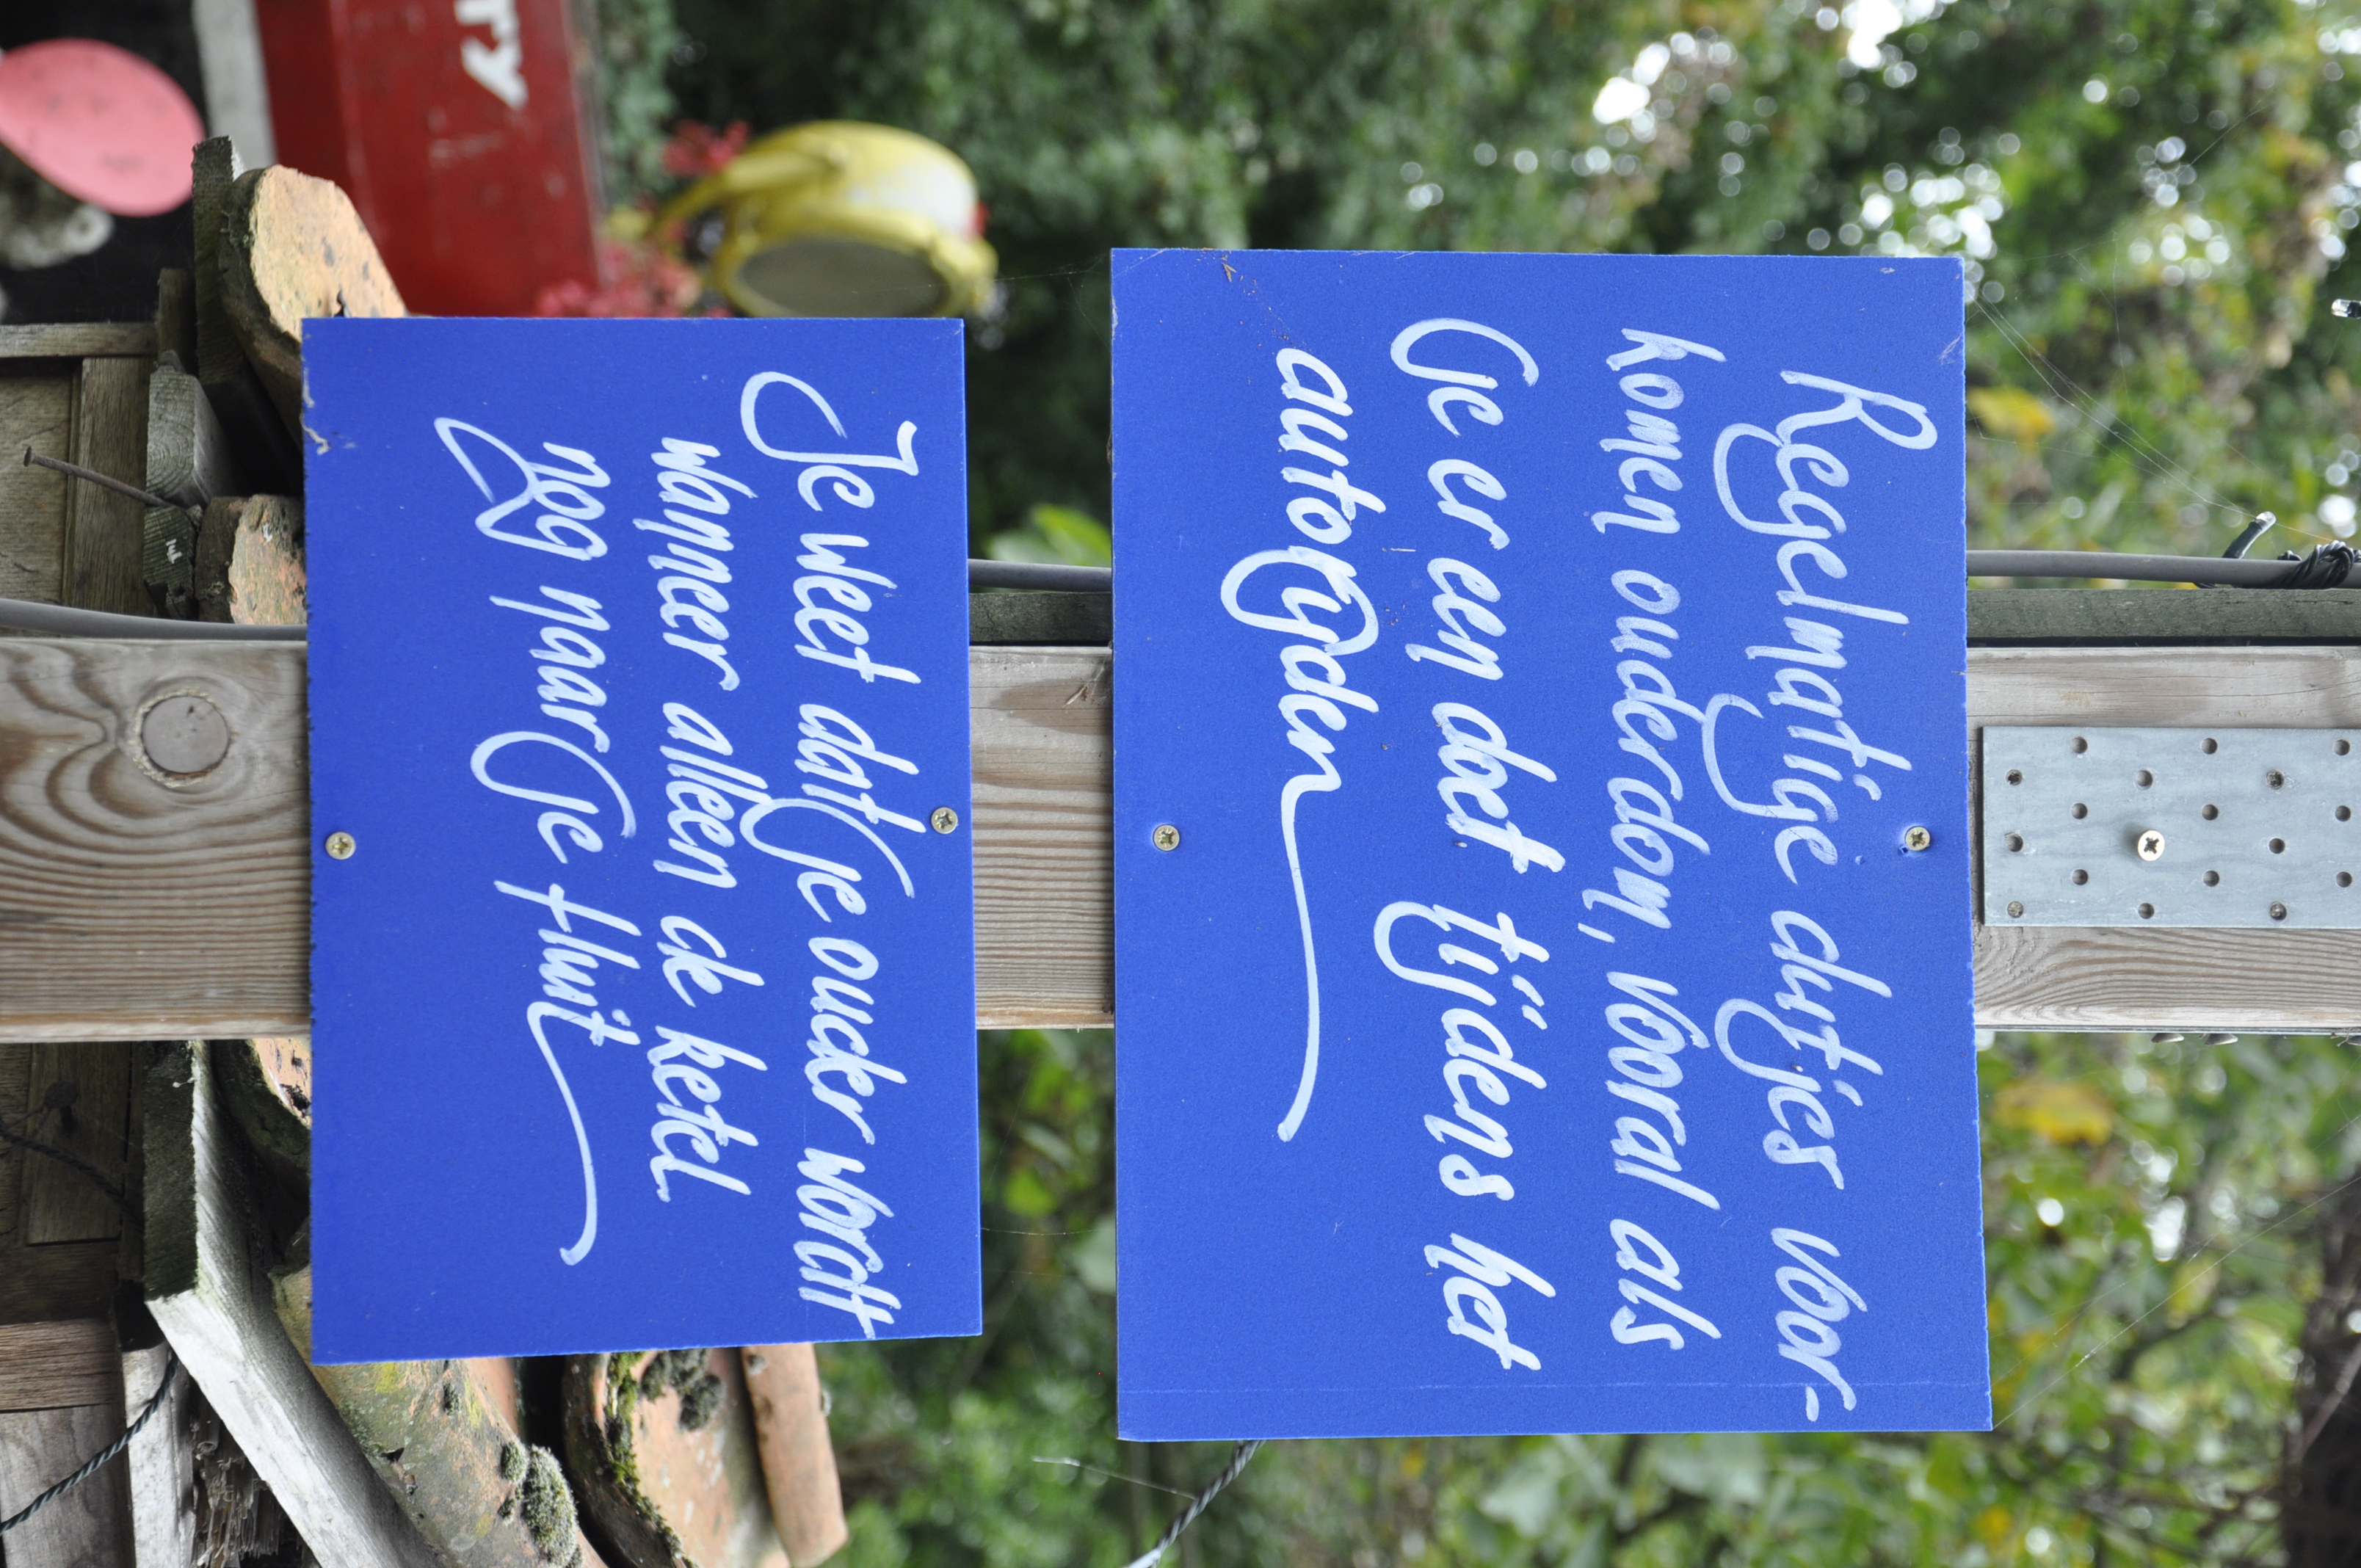 Regelmatige dutjes voor-
komen ouderdom, vooral als
je er een doet tijdens het
autorijden
Je weet dat je ouder wordt
wanneer alleen de ketel
nog naar je fluit